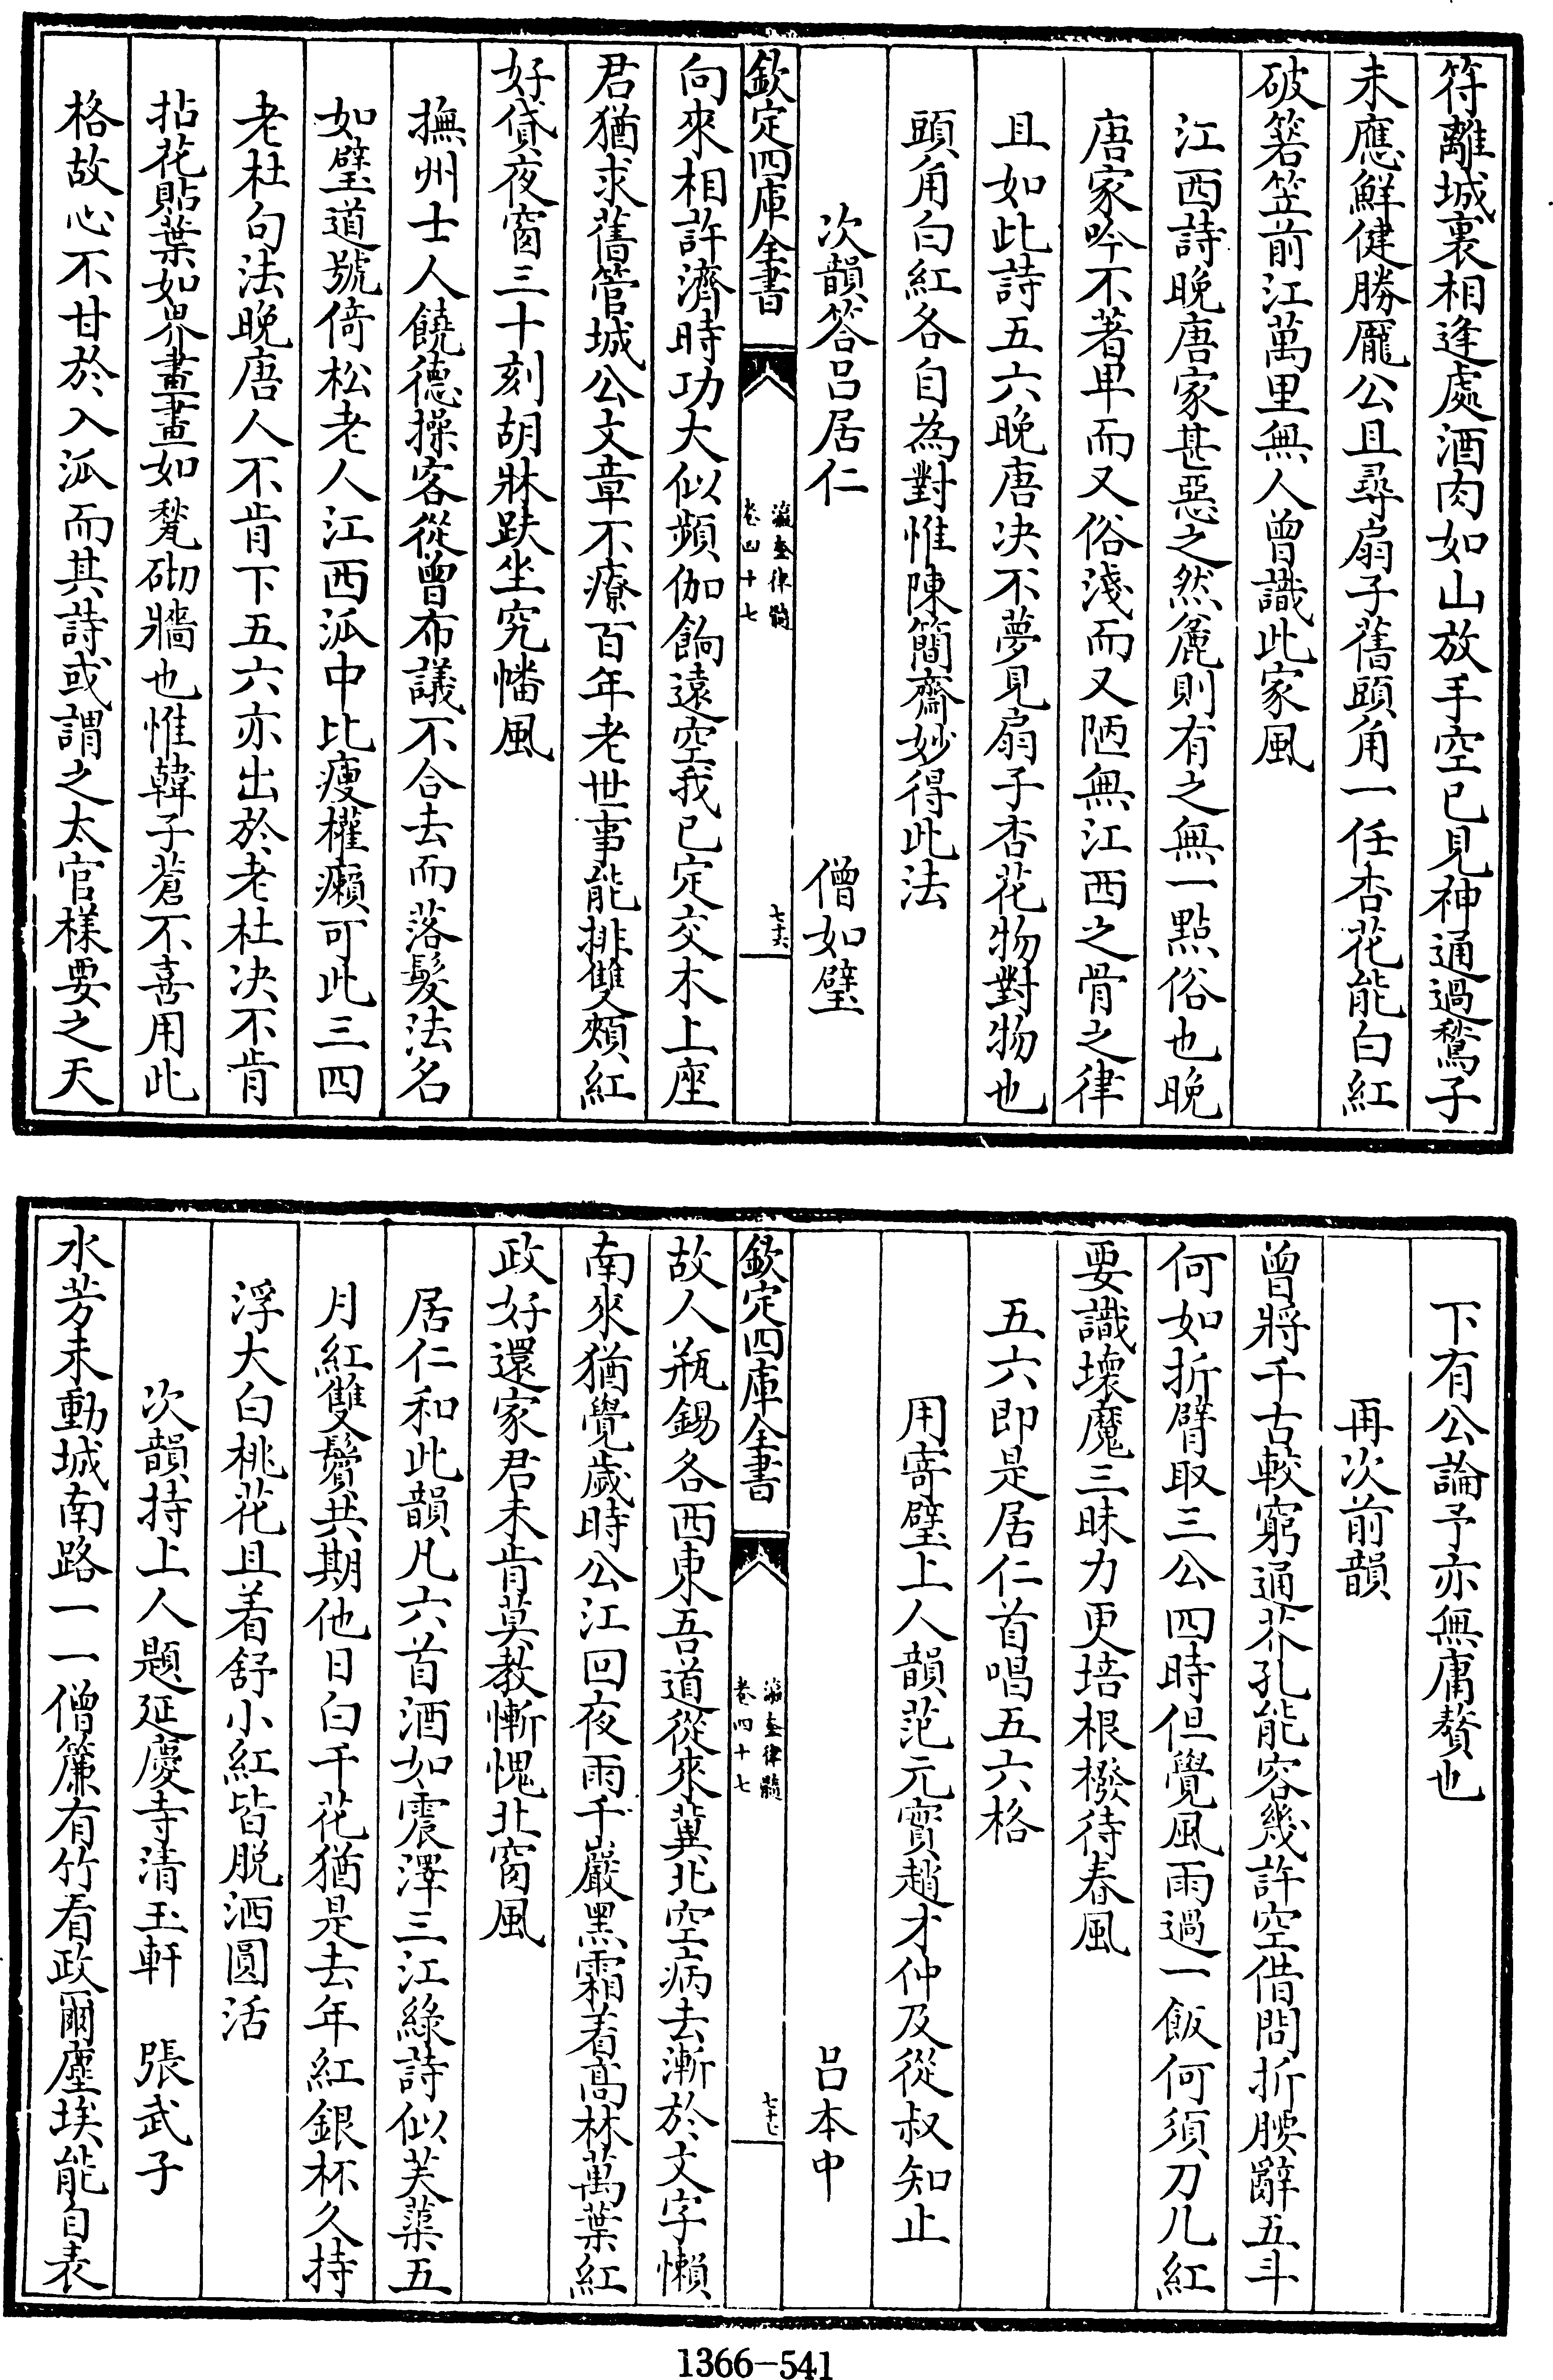 符離城裏相逢處酒肉如山放手空已見神通過鶖子
未應鮮健勝龎公且尋扇子舊頭角一任杏花能白紅
破箬笠前江萬里無人曾識此家風
江西詩晚唐家甚惡之然麄則有之無一點俗也晚
唐家吟不著卑而又俗淺而又陋無江西之骨之律
且如此詩五六晚唐决不夢見扇子杏花物對物也
頭角白紅各自為對惟陳簡齋妙得此法
次韻答呂居仁 僧如璧
欽定四庫全書 瀛奎律髓 卷四十七 七十六
向來相許濟時功大似頻伽餉遠空我已定交木上座
君猶求舊管城公文章不療百年老世事能排雙頰紅
好貸夜窗三十刻胡牀趺坐究幡風
撫州士人饒德操客從曾布議不合去而落髮法名
如璧道號倚松老人江西派中比瘦權癩可此三四
老杜句法晚唐人不肯下五六亦出於老杜决不肯
拈花貼葉如界畫畫如甃砌牆也惟韓子蒼不喜用此
格故心不甘於入派而其詩或謂之太官樣要之天
下有公論予亦無庸贅也
再次前韻
曾將千古較窮通芥孔能容幾許空借問折腰辭五斗
何如折臂取三公四時但覺風雨過一飯何須刀几紅
要識壞魔三昧力更培根橃待春風
五六即是居仁首唱五六格
用寄璧上人韻范元實趙才仲及從叔知止
呂本中
欽定四庫全書 瀛奎律髓 卷四十七 七十七
故人瓶錫各西東吾道從來冀北空病去漸於文字懶
南來猶覺歲時公江回夜雨千巖黑霜着高林萬葉紅
政好還家君未肯莫教慚愧北窗風
居仁和此韻凡六首酒如震澤三江綠詩似芙蕖五
月紅雙鬢共期他日白千花猶是去年紅銀杯久持
浮大白桃花且着舒小紅皆脱洒圓活
次韻持上人題延慶寺清玉軒 張武子
水芳未動城南路一一僧簾有竹看政爾塵埃能自表
1366-541